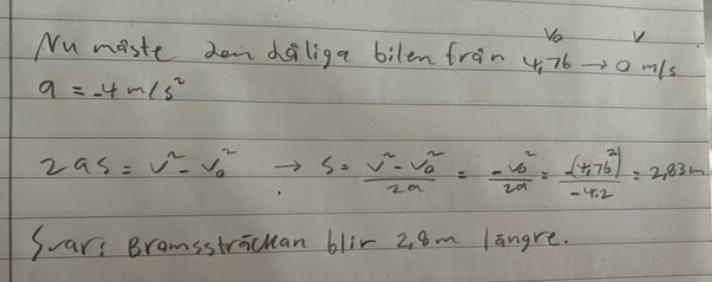 V₀ V
Nu måste den dåliga bilen från 4,76 → 0 m/s
a = -4 m/s²
2as = v² - v₀² → s = (v² - v₀²)/2a = -v₀²/2a = -(4,76²)/-4.2 = 2,83m
Svar: Bromssträckan blir 2,8m längre.